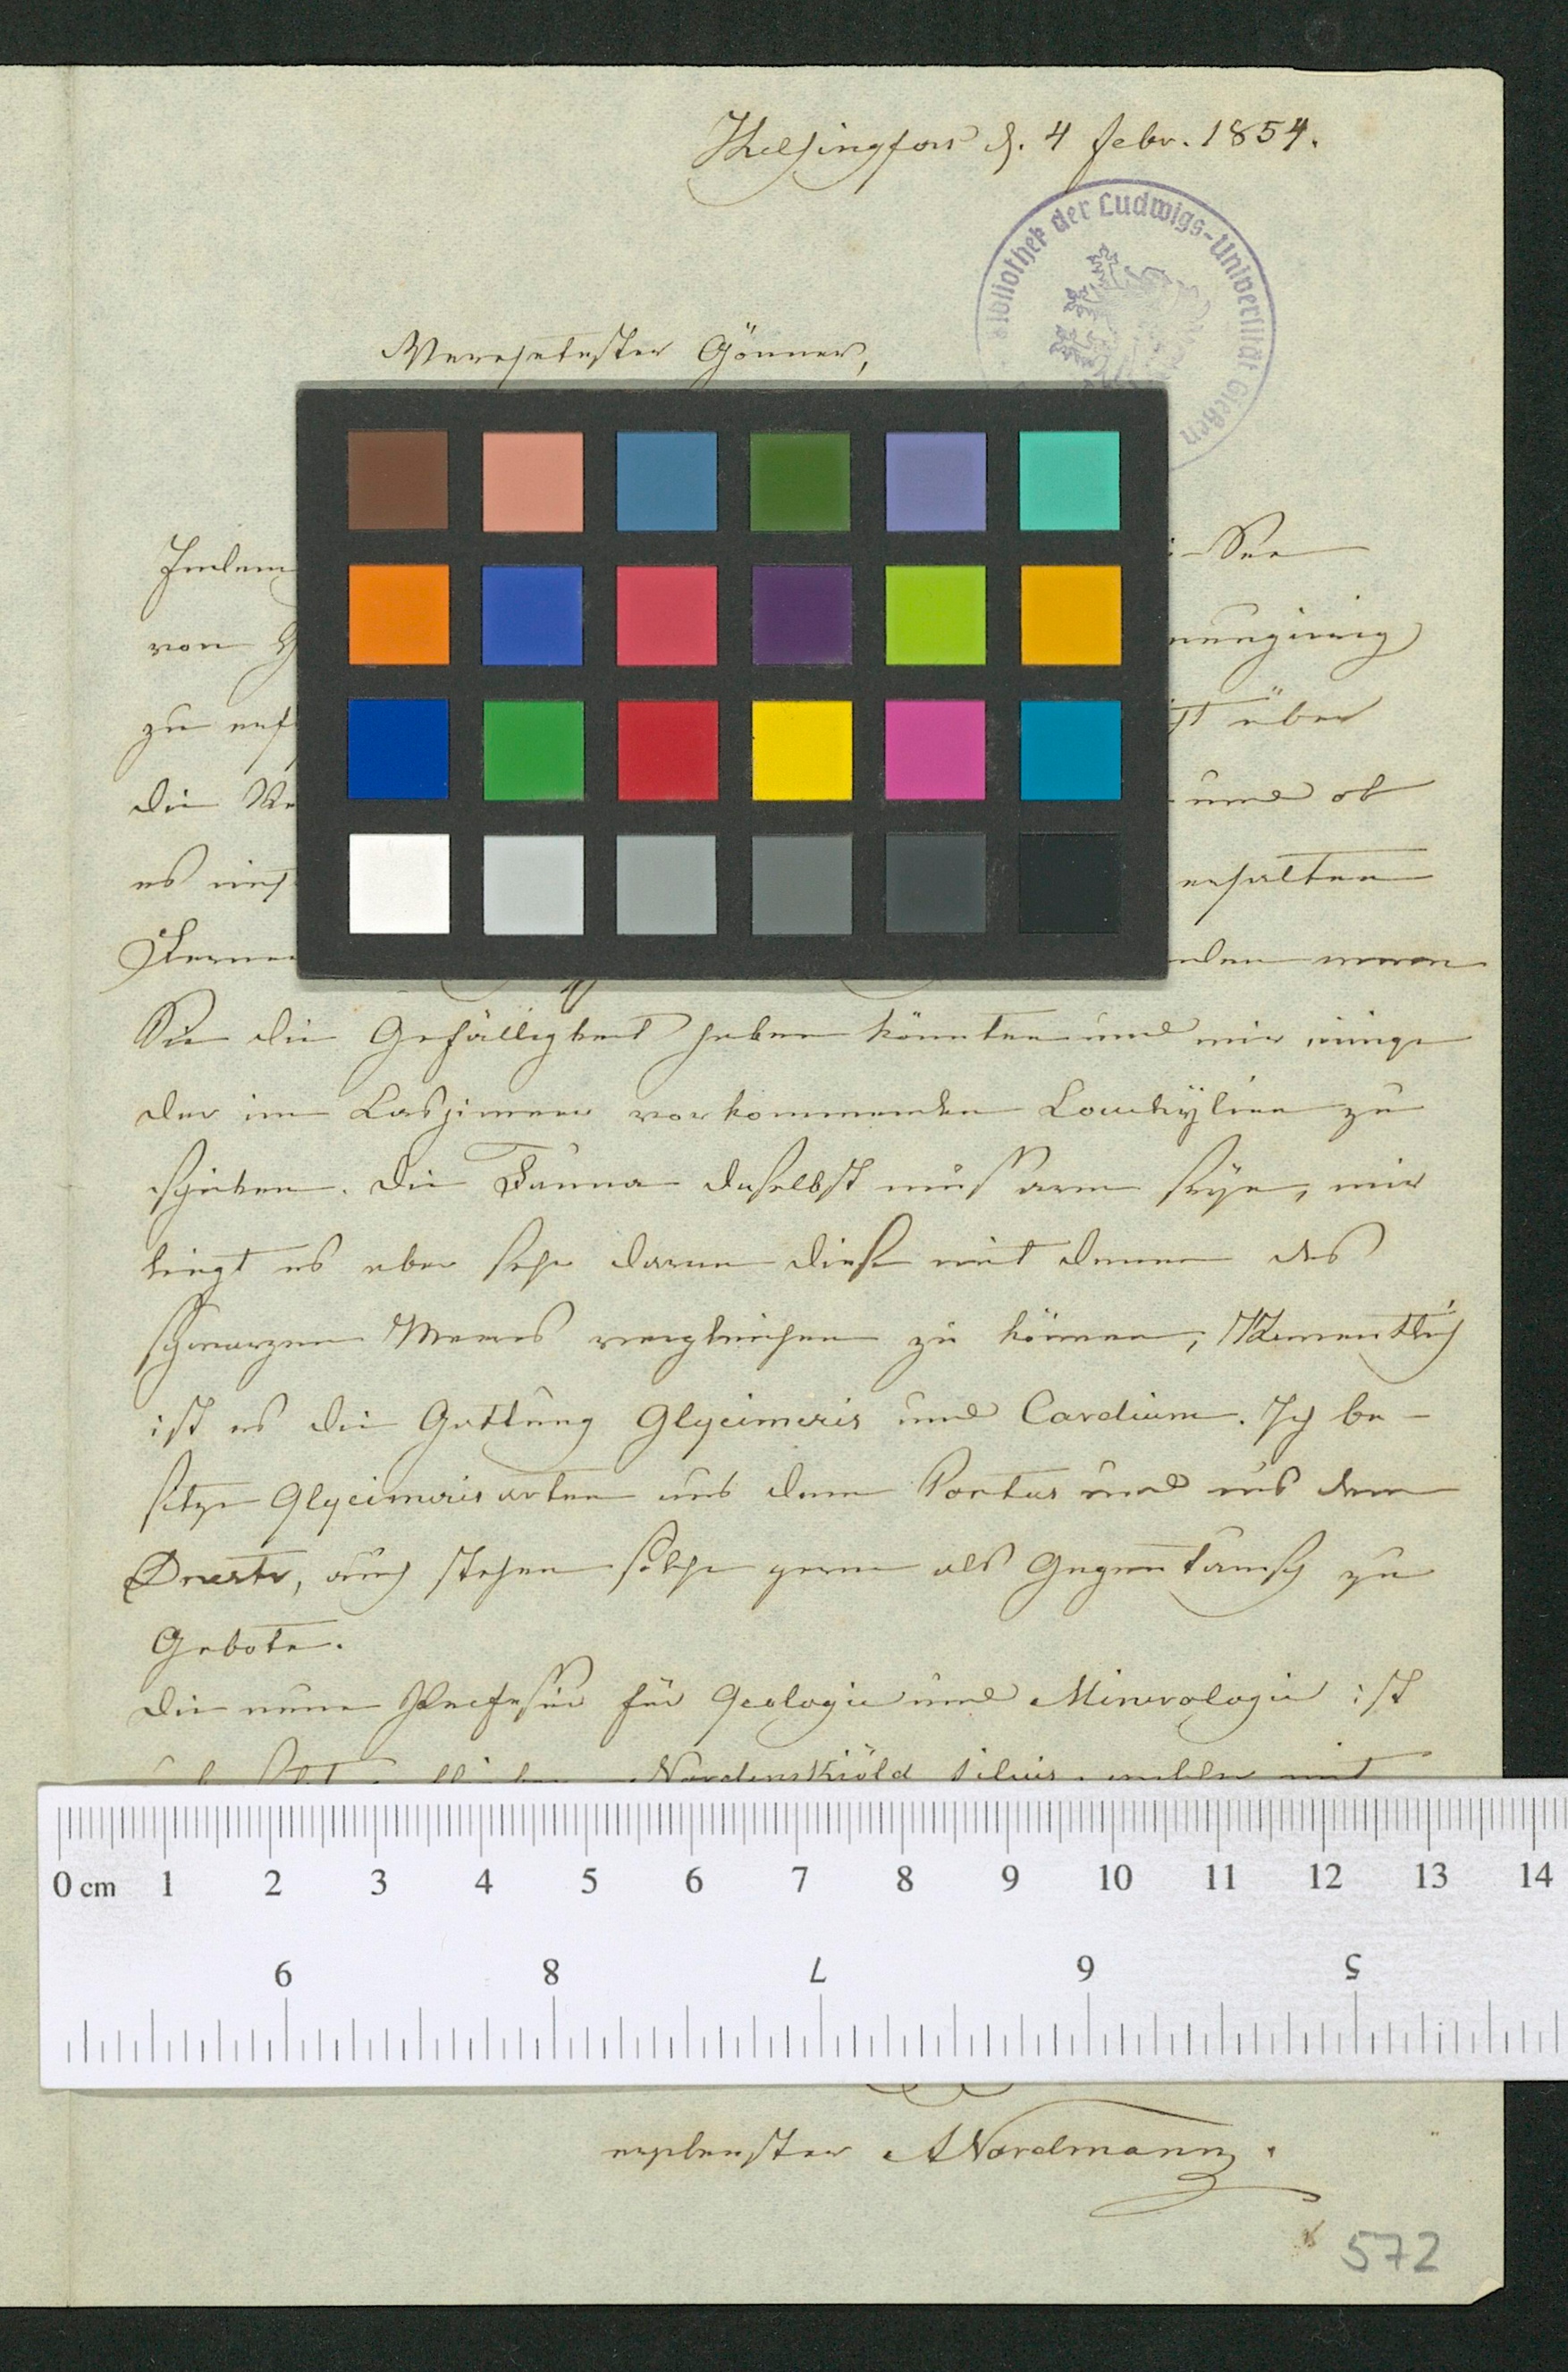 Helsingfors d. 4 Febr. 1854.
Bibliothek der Ludwigs-Universität Gießen
Verehrtester Gönner,
Indem
-See
von
neugierig
zu
ist über
die
und ob
es nich
erhalten
Ferner
den wenn
Sie die Gefälligkeit haben könnten und mir einige
der im Caspimeer vorkommenden Conchÿlien zu
schicken. Die Fauna daselbst muß arm seÿn, mir
liegt es aber sehr daran diese mit denen des
schwarzen Meeres vergleichen zu können, Namentlich
ist es die Gattung Glycimeris und Cardium. Ich be-
sitze Glycimeris arten aus dem Pontus und aus dem
Dnestr, auch stehen solche gern als Gegentausch zu
Gebote.
Die neue Professur für Geologie und Minerologie ist
Nordenskiöld filius, welcher mit
0 cm 1 2 3 4 5 6 7 8 9 10 11 12 13 14
9 8 7 6 5
ergebenster ANordmann.
572